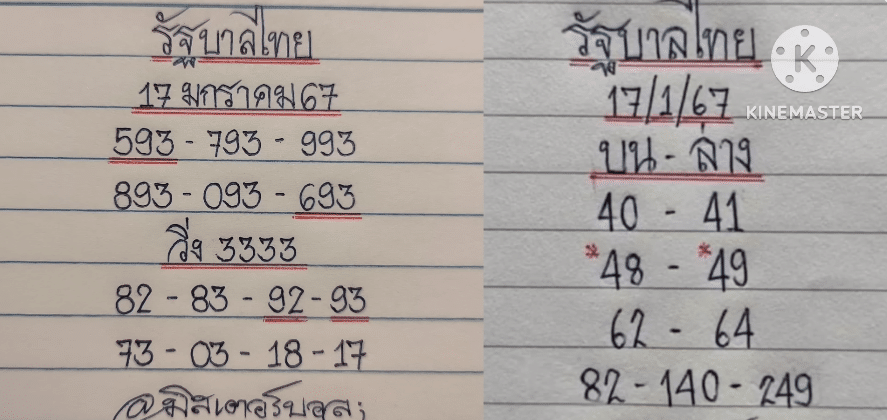 รัฐบาลไทย
17 มกราคม 67
593 - 793 - 993
893 - 093 - 693
วิ่ง 3333
82 - 83 - 92 - 93
73 - 03 - 18 - 17
@มิสเตอร์บอล;
รัฐบาลไทย
17/1/67
บน - ล่าง
40 - 41
*48 - *49
62 - 64
82 - 140 - 249
KINEMASTER